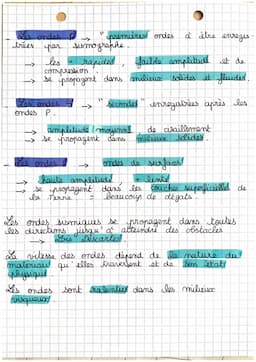 - Les ondes P → "premières" ondes à être enregis-
trées par sismographe.
→ les + rapides, faible amplitude et de
compression.
→ se propagent dans milieux solides et fluides.
- Les ondes → "secondes" enregistrées après les
ondes P.
→ amplitude moyenne, de cisaillement
→ se propagent dans milieux solides.
- Les ondes → ondes de surfaces
→ haute amplitude, + lente
→ se propagent dans les couches superficielles de
la Terre = beaucoup de dégâts.
Les ondes sismiques se propagent dans toutes
les directions jusqu'à atteindre des obstacles
→ Lois Descartes
La vitesse des ondes dépend de la nature du
matériau qu'elles traversent et de son état
physique.
Les ondes sont ralenties dans les milieux
visqueux.